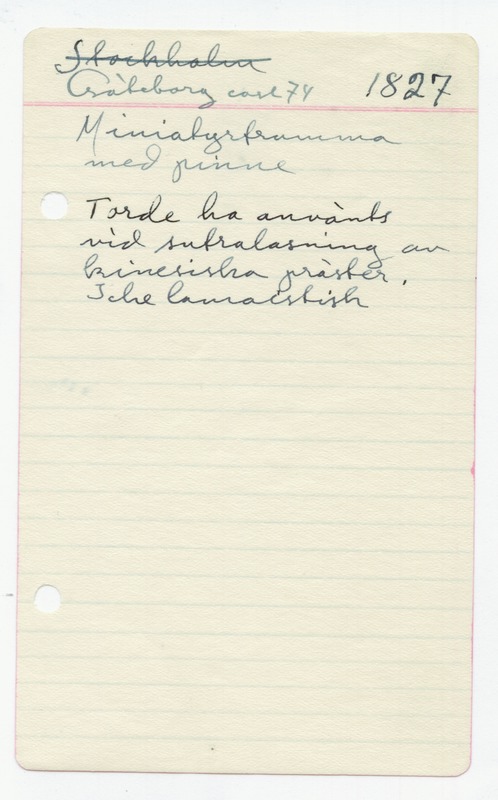 Stockholm
Göteborg cast 74 1827
Miniatyrtrumma
med pinne
Torde ha använts
vid sutraläsning av
kinesiska präster.
Icke lamaistisk